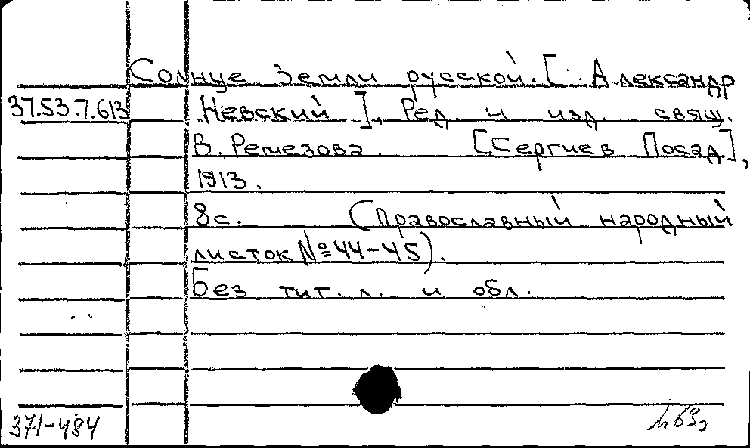 Солнце земли русской. [Александр
37.53.7.613 Невский], Ред. и изд. свящ.
В. Ремезова [Сергиев Посад],
1913.
8с. (Православный народный
листок №44-45).
Без тит. л. и обл.
371-484